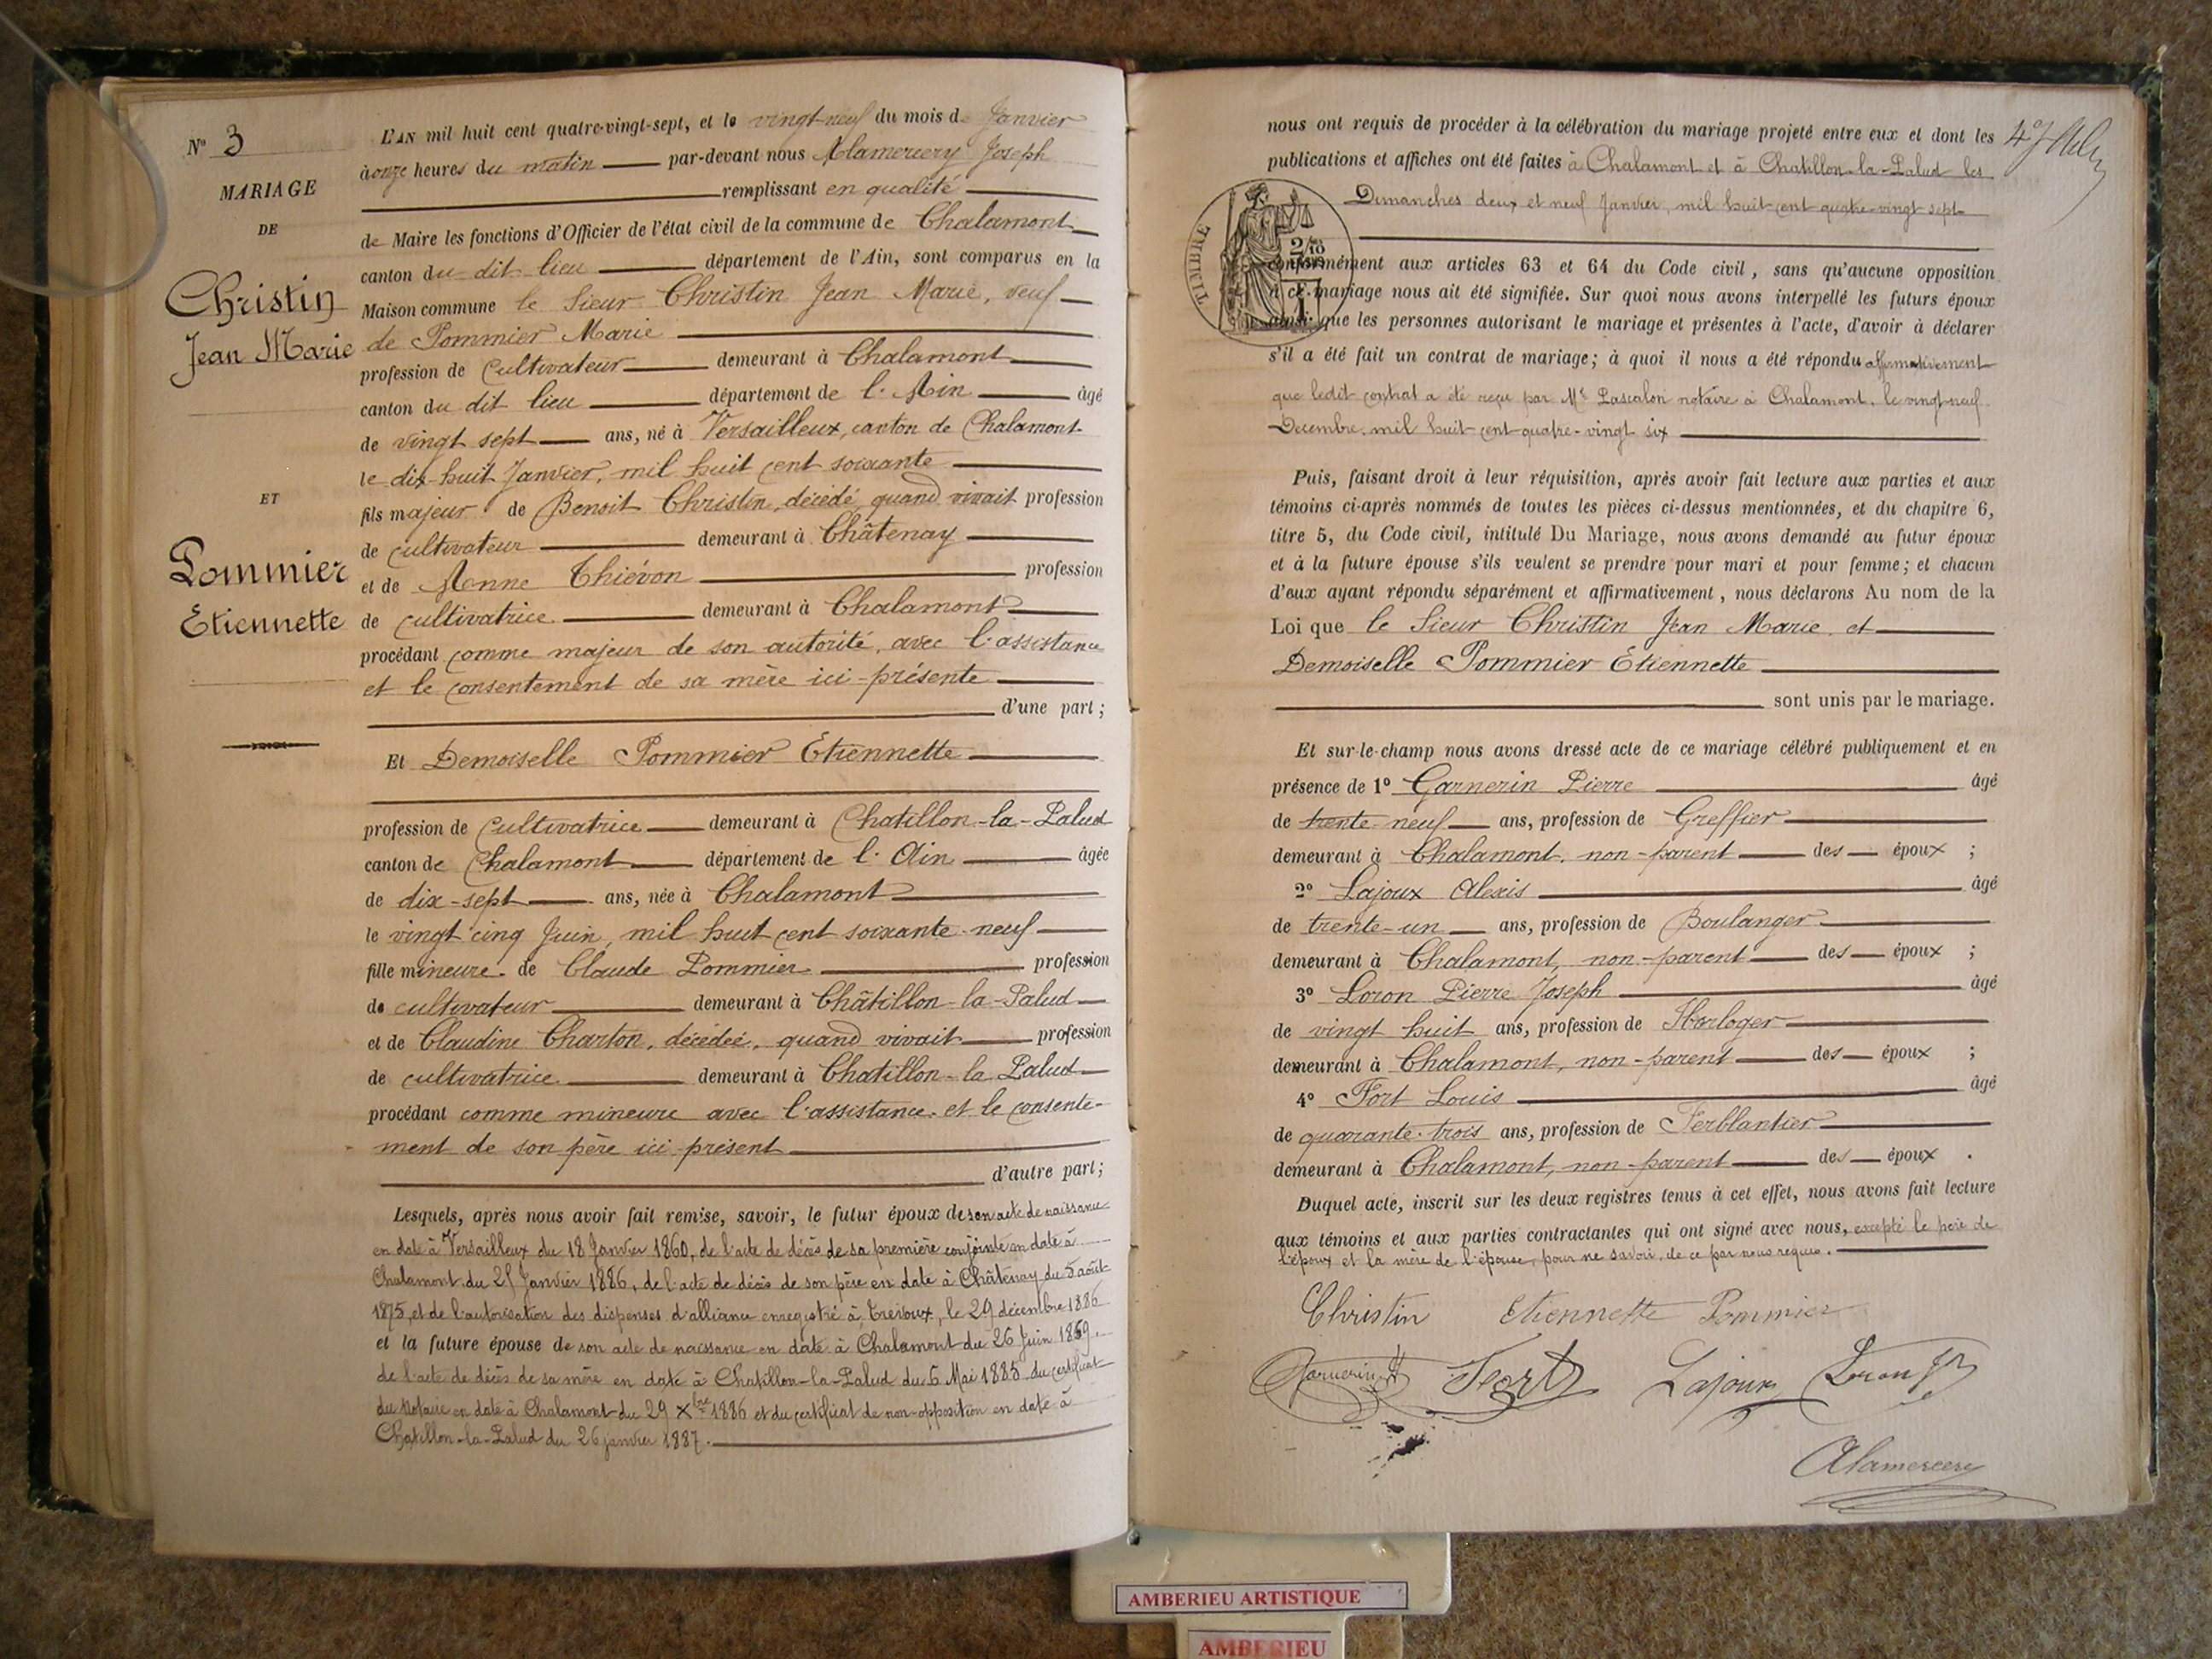 N° 3
MARIAGE
DE
Christin
Jean Marie
ET
Pommier
Etiennette
L'AN mil huit cent quatre-vingt-sept, et le vingt-neuf du mois de Janvier
à onze heures du matin par-devant nous Alamercery Joseph
remplissant en qualité
de Maire les fonctions d'Officier de l'état civil de la commune de Chalamont
canton du dit lieu département de l'Ain, sont comparus en la
Maison commune le Sieur Christin Jean Marie, veuf
de Pommier Marie
profession de Cultivateur demeurant à Chalamont
canton du dit lieu département de l'Ain âgé
de vingt sept ans, né à Versailleux, canton de Chalamont
le dix-huit Janvier, mil huit cent soixante
fils majeur de Benoit Christin, décédé, quand vivait profession
de cultivateur demeurant à Châtenay
et de Anne Thiévon profession
de cultivatrice demeurant à Chalamont
procédant comme majeur de son autorité, avec l'assistance
et le consentement de sa mère ici-présente
d'une part;
Et Demoiselle Pommier Etiennette
profession de Cultivatrice demeurant à Chatillon-la-Palud
canton de Chalamont département de l'Ain âgée
de dix-sept ans, née à Chalamont
le vingt cinq Juin, mil huit cent soixante-neuf
fille mineure de Claude Pommier profession
de cultivateur demeurant à Châtillon-la-Palud
et de Claudine Charton, décédée, quand vivait profession
de cultivatrice demeurant à Chatillon-la Palud
procédant comme mineure avec l'assistance et le consente-
ment de son père ici présent
d'autre part;
Lesquels, après nous avoir fait remise, savoir, le futur époux de son acte de naissance
en date à Versailleux du 18 Janvier 1860, de l'acte de décès de sa première conjointe en date à
Chalamont du Janvier 1886, de l'acte de décès de son père en date à Châtenay du 5 août
1875, et de l'autorisation des dispenses d'alliance enregistré à Trévoux, le 29 décembre 1886
et la future épouse de son acte de naissance en date à Chalamont du 26 Juin 1869.
de l'acte de décès de sa mère en date à Chatillon-la-Palud du 6 Mai 1885 du certificat
du Notaire en date à Chalamont du 29 Xbre 1886 et du certificat de non-opposition en date à
Chatillon-la-Palud du 26 janvier 1887.
nous ont requis de procéder à la célébration du mariage projeté entre eux et dont les
publications et affiches ont été faites à Chalamont et à Chatillon-la-Palud les
Dimanches deux et neuf Janvier, mil huit cent quatre-vingt sept
TIMBRE
conformément aux articles 63 et 64 du Code civil, sans qu'aucune opposition
à ce mariage nous ait été signifiée. Sur quoi nous avons interpellé les futurs époux
ainsi que les personnes autorisant le mariage et présentes à l'acte, d'avoir à déclarer
s'il a été fait un contrat de mariage; à quoi il nous a été répondu affirmativement
que ledit contrat a été reçu par Me Pascalon notaire à Chalamont, le vingt-neuf
Décembre mil huit cent quatre-vingt six
Puis, faisant droit à leur réquisition, après avoir fait lecture aux parties et aux
témoins ci-après nommés de toutes les pièces ci-dessus mentionnées, et du chapitre 6,
titre 5, du Code civil, intitulé Du Mariage, nous avons demandé au futur époux
et à la future épouse s'ils veulent se prendre pour mari et pour femme; et chacun
d'eux ayant répondu séparément et affirmativement, nous déclarons Au nom de la
Loi que le Sieur Christin Jean Marie et
Demoiselle Pommier Etiennette
sont unis par le mariage.
Et sur-le-champ nous avons dressé acte de ce mariage célébré publiquement et en
présence de 1° Garnerin Pierre âgé
de trente-neuf ans, profession de Greffier
demeurant à Chalamont, non-parent des époux ;
2° Lajoux Alexis âgé
de trente-un ans, profession de Boulanger
demeurant à Chalamont, non-parent des époux ;
3° Loron Pierre Joseph âgé
de vingt huit ans, profession de Horloger
demeurant à Chalamont, non-parent des époux ;
4° Fort Louis âgé
de quarante-trois ans, profession de Ferblantier
demeurant à Chalamont, non-parent des époux .
Duquel acte, inscrit sur les deux registres tenus à cet effet, nous avons fait lecture
aux témoins et aux parties contractantes qui ont signé avec nous, excepté le père de
l'époux et la mère de l'épouse, pour ne savoir, de ce par nous requis.
Christin Etiennette Pommier
Garnerin Fort Lajoux Loron
Alamercery
AMBERIEU ARTISTIQUE
AMBERIEU